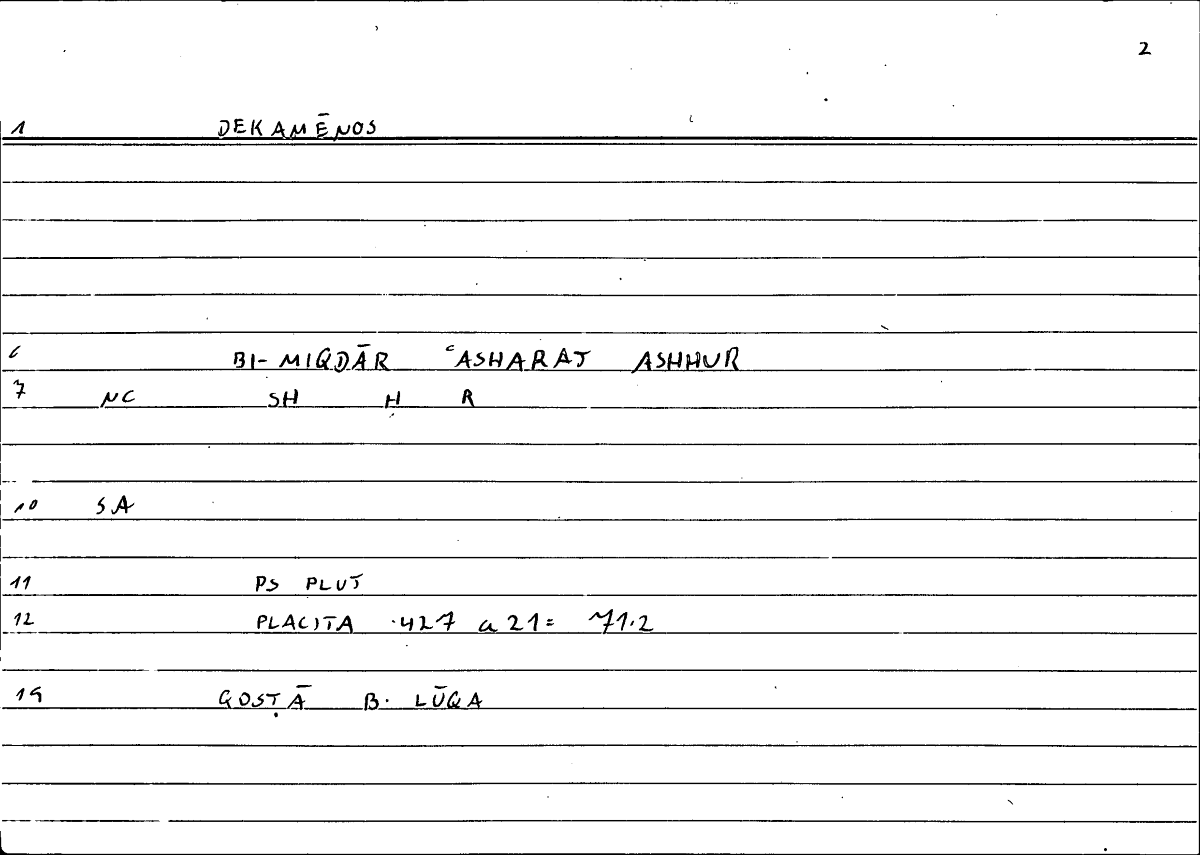 2
1 DEKAMĒNOS
6 BI- MIQDĀR ʿASHARAT ASHHUR
7 NC SH H R
10 SA
11 PS PLUT
12 PLACITA 427 a 21 = 71.2
19 QOSṬĀ B. LŪQA